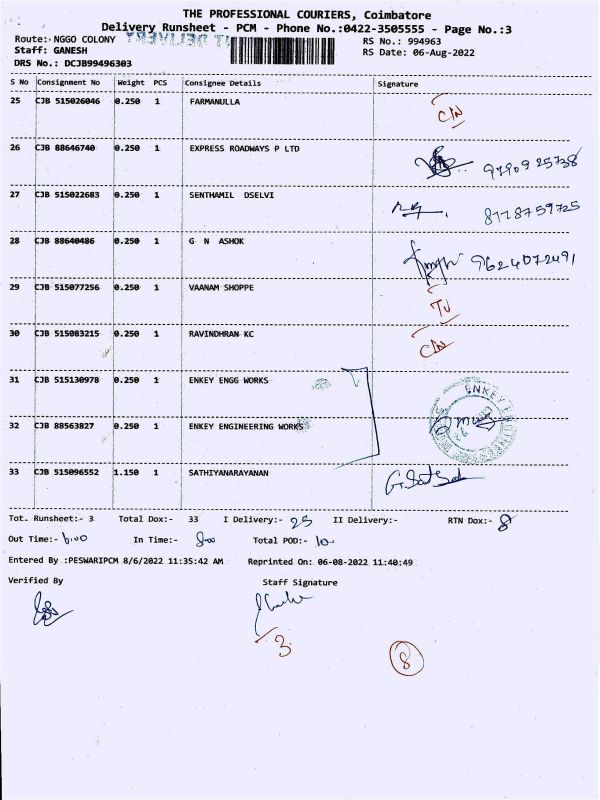 THE PROFESSIONAL COURIERS, Coimbatore
Delivery Runsheet - PCM - Phone No.:0422-3505555 - Page No.:3
Route:- NGGO COLONY
RS No.: 994963
Staff: GANESH
RS Date: 06-Aug-2022
DRS No.: DCJB99496303
S No Consignment No Weight PCS Consignee Details Signature
25 CJB 515026046 0.250 1 FARMANULLA C/N
26 CJB 88646740 0.250 1 EXPRESS ROADWAYS P LTD 9790925738
27 CJB 515022683 0.250 1 SENTHAMIL DSELVI 8118759725
28 CJB 88640486 0.250 1 G N ASHOK 9624072491
29 CJB 515077256 0.250 1 VAANAM SHOPPE
30 CJB 515083215 0.250 1 RAVINDHRAN KC C/N
31 CJB 515130978 0.250 1 ENKEY ENGG WORKS ENKEY
32 CJB 88563827 0.250 1 ENKEY ENGINEERING WORKS
33 CJB 515096552 1.150 1 SATHIYANARAYANAN
Tot. Runsheet:- 3 Total Dox:- 33 I Delivery:- 25 II Delivery:- RTN Dox:- 8
Out Time:- In Time:- Total POD:- 10
Entered By :PESWARIPCM 8/6/2022 11:35:42 AM Reprinted On: 06-08-2022 11:40:49
Verified By Staff Signature
3
8